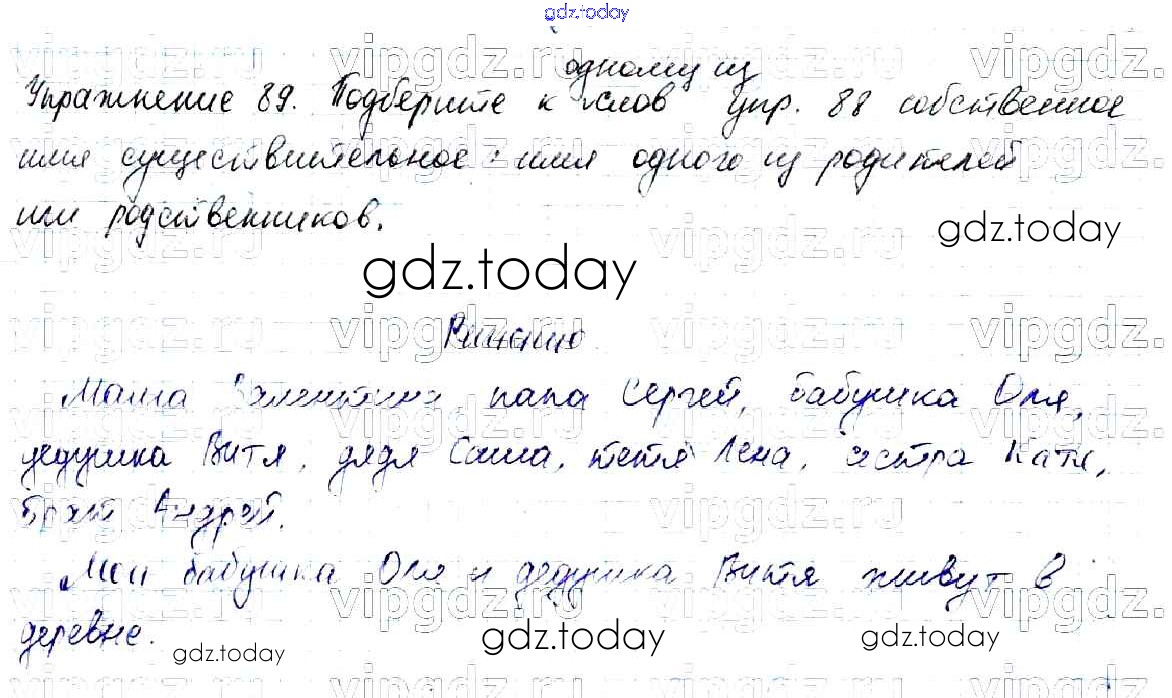 gdz.today
одному из
Упражнение 89. Подберите к слов упр. 88 собственное
имя существительное: имя одного из родителей
или родственников.
gdz.today
gdz.today
Решение
Мама Валентина, папа Сергей, бабушка Оля,
дедушка Витя, дядя Саша, тетя Лена, сестра Катя,
брат Андрей.
Мои бабушка Оля и дедушка Витя живут в
деревне.
gdz.today
gdz.today
gdz.today
vipgdz.ru